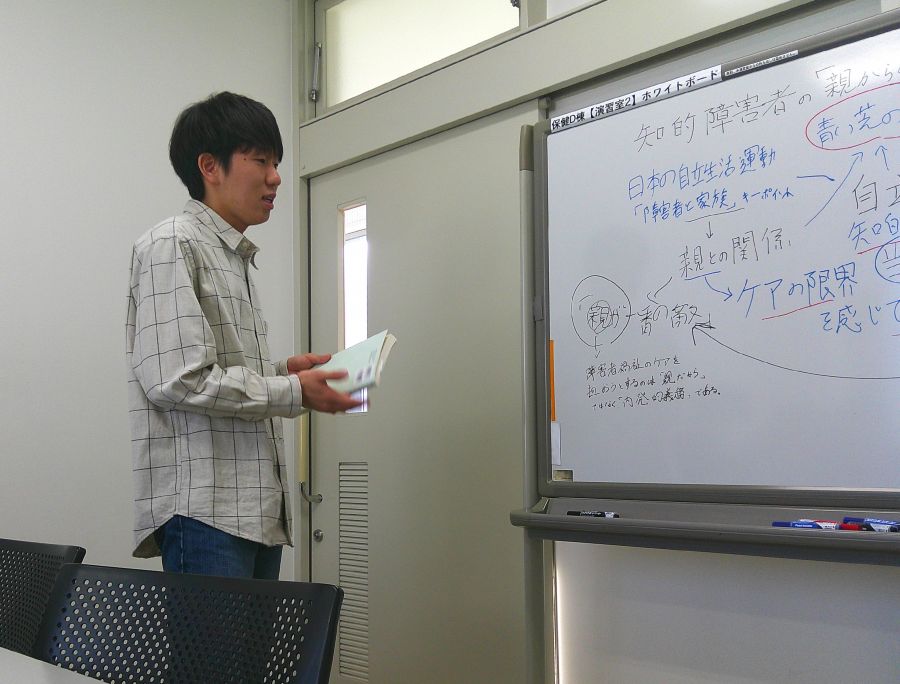 保健D棟【演習室2】ホワイトボード
知的障害者の「親から
青い芝の
日本の自立生活運動
「障害者と家族」キーポイント
自立
親との関係
知的
ケアの限界
を感じて
親が
障害者福祉のケアを
「親だから」
「内発的義務」である。